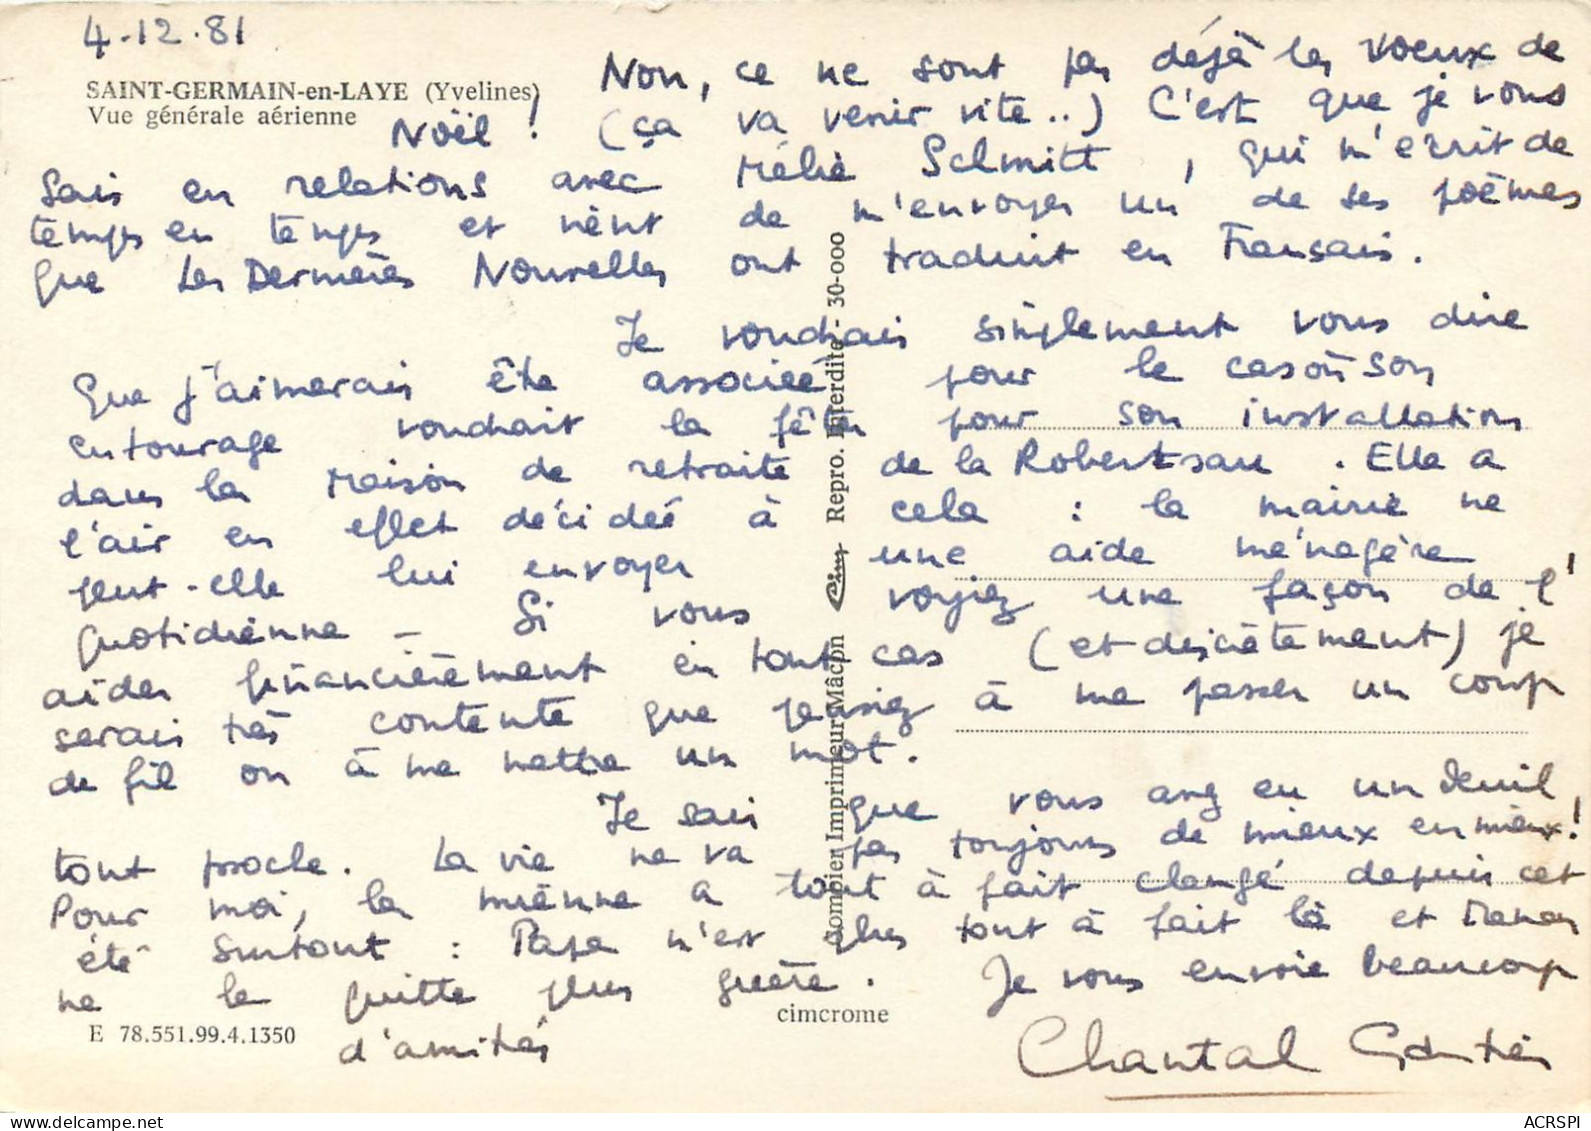 4.12.81
SAINT-GERMAIN-en-LAYE (Yvelines)
Vue générale aérienne
Non, ce ne sont pas déjà les voeux de
Noël ! (ça va venir vite..) C'est que je vous
sais en relations avec Mélie Schmitt, qui m'écrit de
temps en temps et vient de m'envoyer un de ses poèmes
que Les Dernières Nouvelles ont traduit en Français.
Je voudrais simplement vous dire
que j'aimerais être associée pour le cas où son
entourage voudrait la fêter pour son installation
dans la Maison de retraite de la Robertsau. Elle a
l'air en effet décidée à cela : la mairie ne
peut-elle lui envoyer une aide ménagère
quotidienne - Si vous voyiez une façon de l'
aider financièrement en tout cas (et discrètement) je
serais très contente que pensiez à me passer un coup
de fil ou à me mettre un mot.
Je sais que vous avez eu un deuil
tout proche. La vie ne va pas toujours de mieux en mieux !
Pour moi, la mienne a tout à fait changé depuis cet
été surtout : Papa n'est plus tout à fait là et Maman
ne le quitte plus guère. Je vous envoie beaucoup
d'amitiés
Chantal
cimcrome
E 78.551.99.4.1350
Combier Imprimeur Mâcon Cim Repro. Interdite - 30-000
ACRSPI